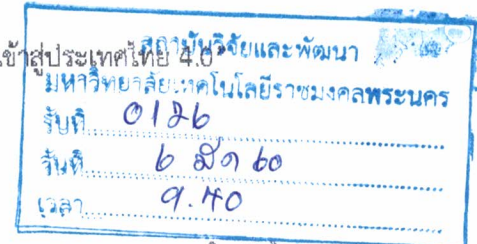 เข้าสู่ประเทศไทย 4.0"
สถาบันวิจัยและพัฒนา
มหาวิทยาลัยเทคโนโลยีราชมงคลพระนคร
รับที่ 0126
วันที่ 6 มีค 60
เวลา 9.40